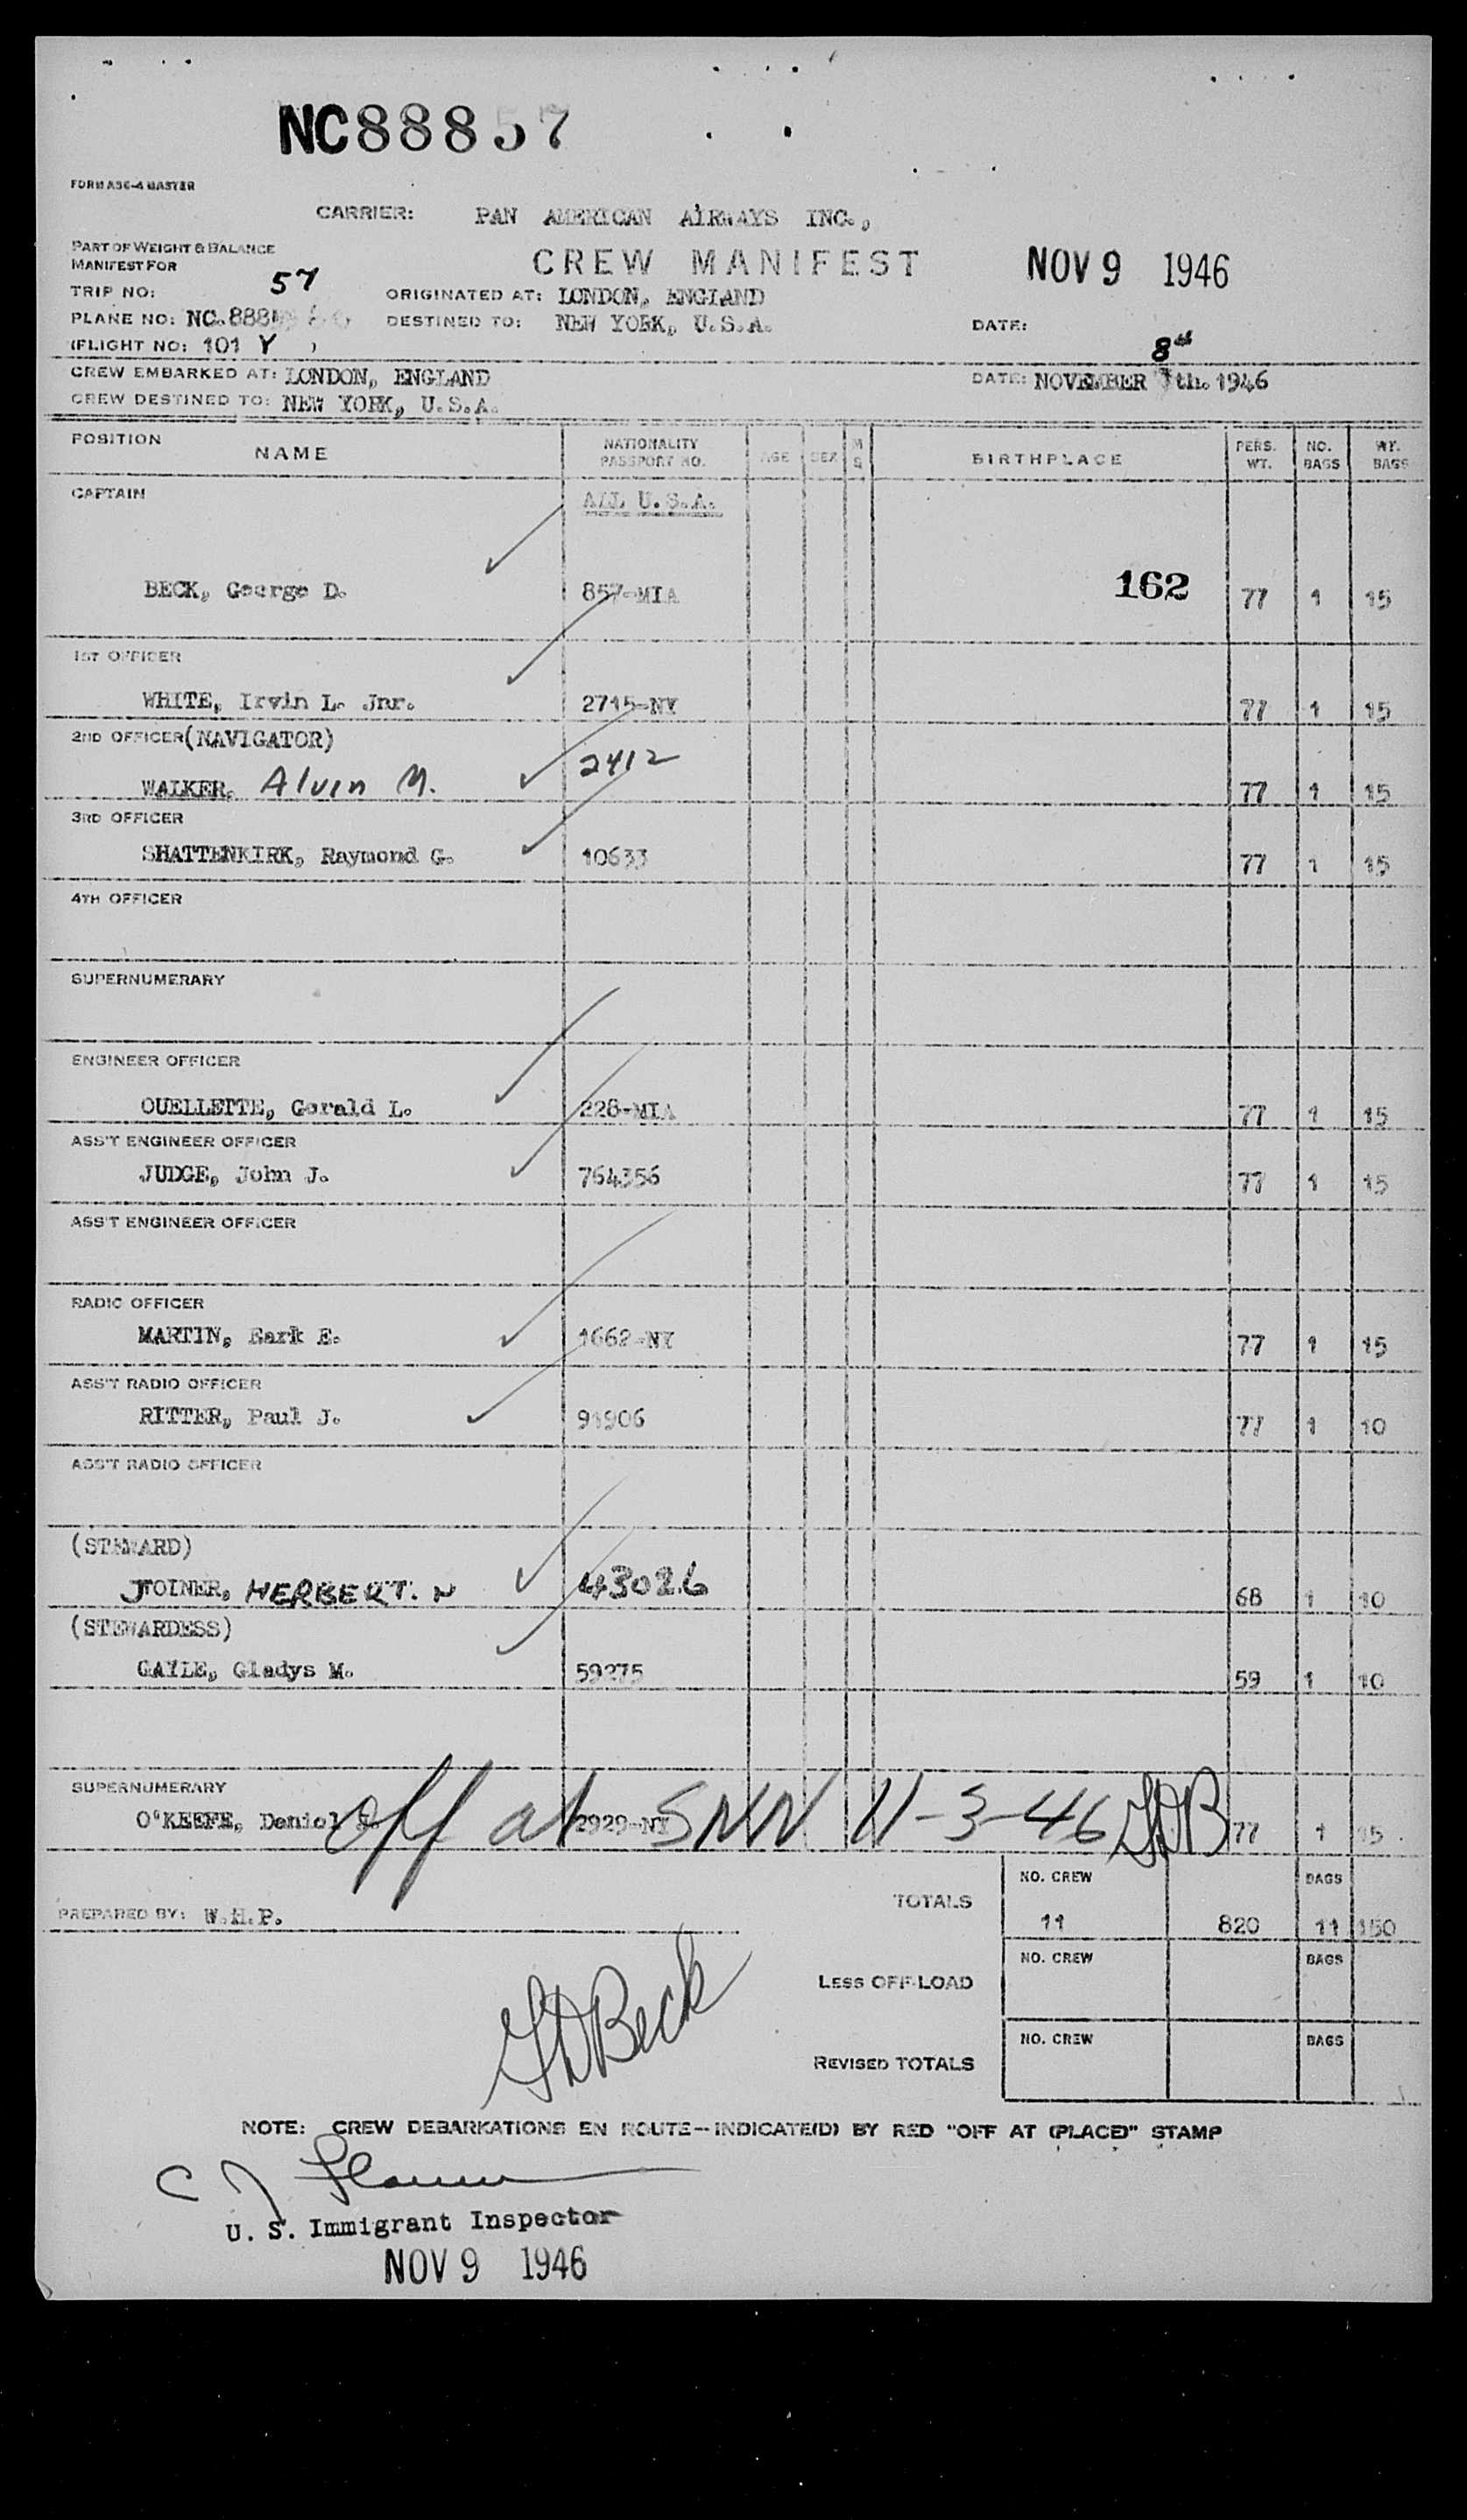 NC88857
FORM ASC-4 MASTER
CARRIER: PAN AMERICAN AIRWAYS INC.,
PART OF WEIGHT & BALANCE
MANIFEST FOR
CREW MANIFEST
NOV 9 1946
TRIP NO: 57
ORIGINATED AT: LONDON, ENGLAND
PLANE NO: NC.888
DESTINED TO: NEW YORK, U.S.A.
DATE:
(FLIGHT NO: 101 Y )
8th
CREW EMBARKED AT: LONDON, ENGLAND
DATE: NOVEMBER 7th. 1946
CREW DESTINED TO: NEW YORK, U.S.A.
POSITION NAME NATIONALITY PASSPORT NO. AGE SEX M S BIRTHPLACE PERS. WT. NO. BAGS WT. BAGS
CAPTAIN ALL U.S.A.
BECK, George D. 857-MIA 162 77 1 15
1ST OFFICER
WHITE, Irvin L. Jnr. 2715-NY 77 1 15
2ND OFFICER (NAVIGATOR)
WALKER, Alvin M. 2412 77 1 15
3RD OFFICER
SHATTENKIRK, Raymond G. 10633 77 1 15
4TH OFFICER
SUPERNUMERARY
ENGINEER OFFICER
OUELLETTE, Gerald L. 228-MIA 77 1 15
ASS'T ENGINEER OFFICER
JUDGE, John J. 764356 77 1 15
ASS'T ENGINEER OFFICER
RADIO OFFICER
MARTIN, Eark E. 1662-NY 77 1 15
ASS'T RADIO OFFICER
RITTER, Paul J. 91906 77 1 10
ASS'T RADIO OFFICER
(STEWARD)
JOINER, HERBERT. N 43026 68 1 10
(STEWARDESS)
GAYLE, Gladys M. 59275 59 1 10
SUPERNUMERARY
O'KEEFE, Daniel 2929-NY 77 1 15
off at SNN 11-3-46 GDB
PREPARED BY: W.H.P.
TOTALS NO. CREW 11 820 BAGS 11 150
LESS OFF-LOAD NO. CREW BAGS
REVISED TOTALS NO. CREW BAGS
GDBeck
NOTE: CREW DEBARKATIONS EN ROUTE--INDICATE(D) BY RED "OFF AT (PLACE)" STAMP
C J
U. S. Immigrant Inspector
NOV 9 1946